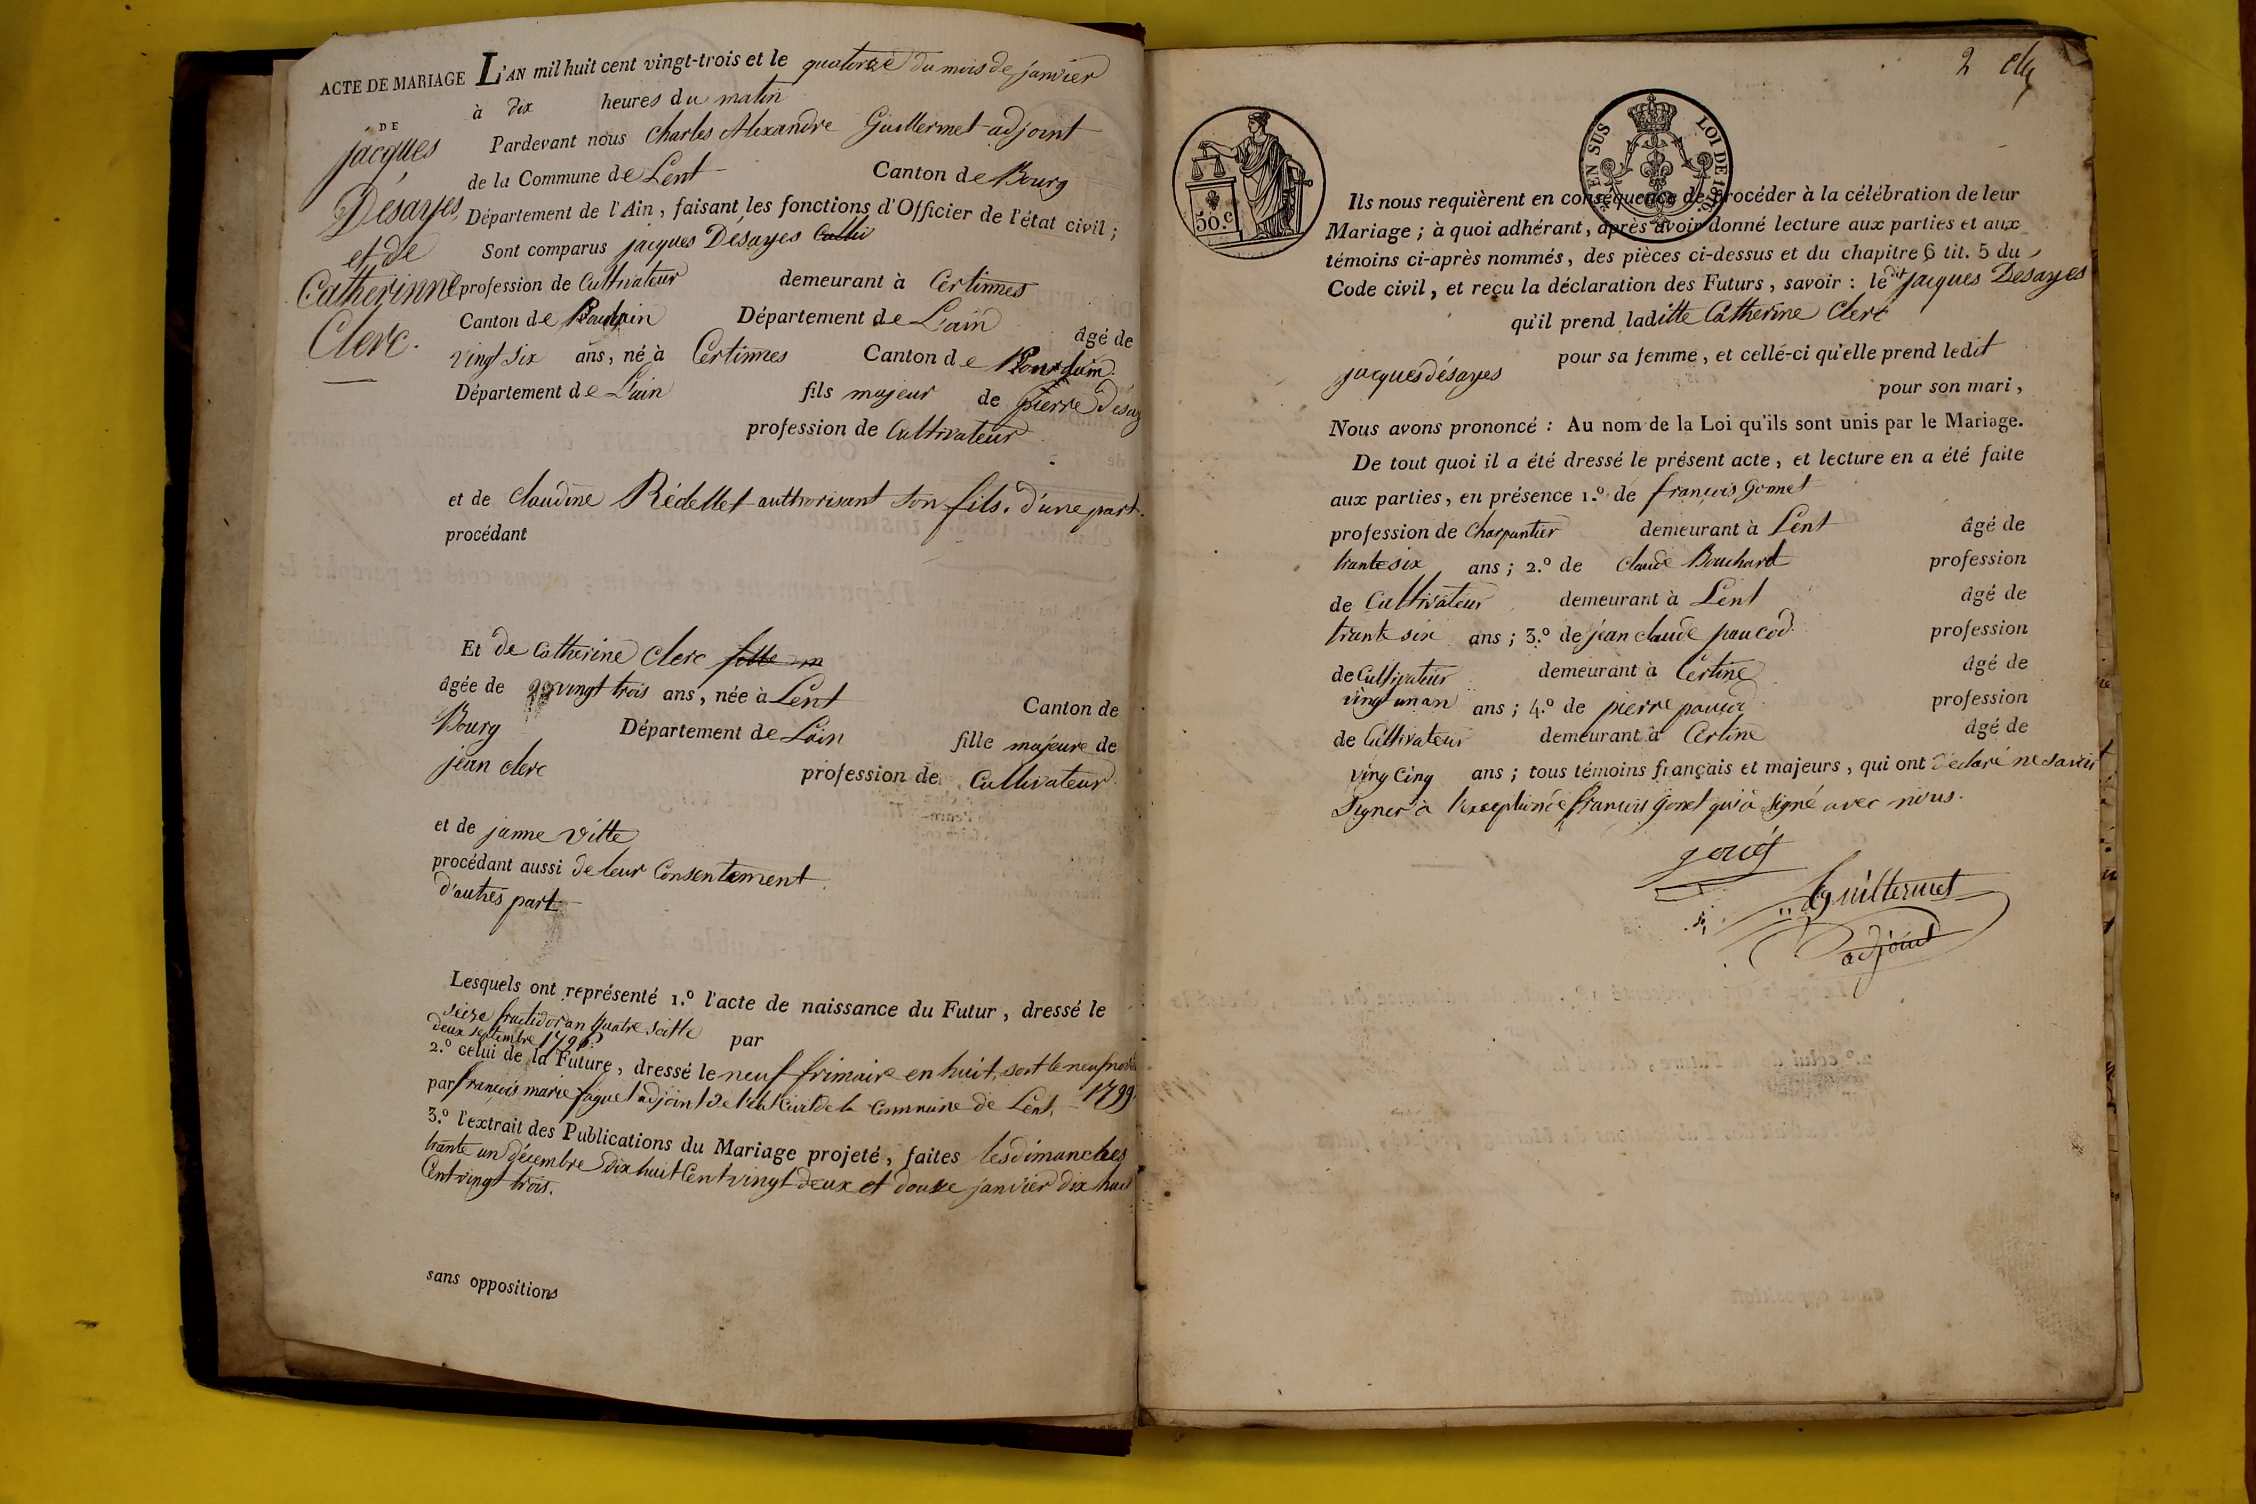 ACTE DE MARIAGE
DE
jacques
Désayes
et de
Catherinne
Clerc.
L'AN mil huit cent vingt-trois et le quatorze du mois de janvier
à dix heures du matin
Pardevant nous Charles Alexandre Guillermet adjoint
de la Commune de Lent Canton de Bourg
Département de l'Ain, faisant les fonctions d'Officier de l'état civil ;
Sont comparus jacques Desayes
profession de Cultivateur demeurant à Certinnes
Canton de Département de L'ain âgé de
vingt six ans, né à Certinnes Canton de
Département de L'ain fils majeur de pierre Désay
profession de Cultivateur
et de Claudine Rédellet authorisant son fils. d'une part.
procédant
Et de Catherine Clerc fille m
âgée de vingt trois ans, née à Lent Canton de
Bourg Département de Lain fille majeure de
jean clerc profession de Cultivateur
et de janne Vitte
procédant aussi de leur Consentement
d'autres part
Lesquels ont représenté 1.º l'acte de naissance du Futur, dressé le
seize fructidor an quatre par
deux septembre 1796
2.º celui de la Future, dressé le neuf frimaire en huit, soit le neuf
par françois marie adjoint de l'etat Civil de la Commune de Lent, 1799
3.º l'extrait des Publications du Mariage projeté, faites les dimanches
trante un décembre dix huit Cent vingt deux et douze janvier dix huit
Cent vingt trois.
sans oppositions
2
50.c
EN SUS LOI DE 1816.
Ils nous requièrent en conséquence de procéder à la célébration de leur
Mariage ; à quoi adhérant, après avoir donné lecture aux parties et aux
témoins ci-après nommés, des pièces ci-dessus et du chapitre 6 tit. 5 du
Code civil, et reçu la déclaration des Futurs, savoir : le dit jacques Desayes
qu'il prend laditte Catherine Clerc
pour sa femme, et celle-ci qu'elle prend ledit
jacques désayes pour son mari,
Nous avons prononcé : Au nom de la Loi qu'ils sont unis par le Mariage.
De tout quoi il a été dressé le présent acte, et lecture en a été faite
aux parties, en présence 1.º de françois Gonnet
profession de Charpantier demeurant à Lent âgé de
trante six ans ; 2.º de Claude Bouchard profession
de Cultivateur demeurant à Lent âgé de
trante six ans ; 3.º de jean claude paucod profession
de Cultivateur demeurant à Certine âgé de
vingt un an ans ; 4.º de pierre paucod profession
de Cultivateur demeurant à Certine âgé de
ving Cinq ans ; tous témoins français et majeurs, qui ont déclaré ne savoir
Signer à l'exception de françois gonet qui a signé avec nous.
Guillermet
adjoint